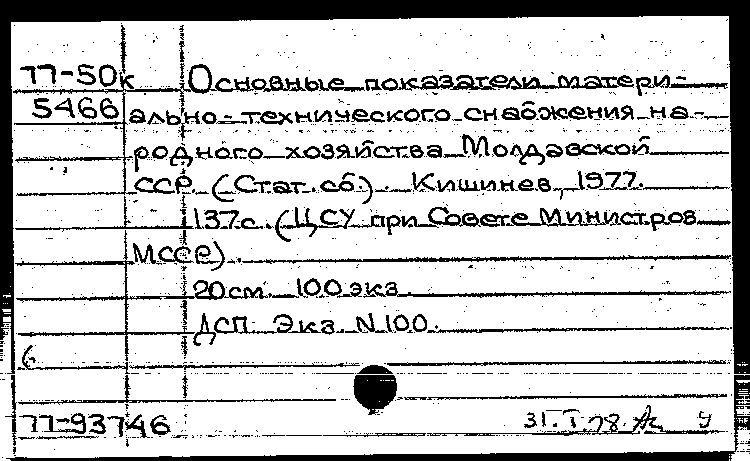 77-50к Основные показатели матери-
5466 ально-технического снабжения на-
родного хозяйства Молдавской
ССР (Стат. сб.). Кишинев, 1977.
137с. (ЦСУ при Совете Министров
МССР).
20см. 100 экз.
ДСП. Экз. N 100.
6
77-93746 31.I.78. У